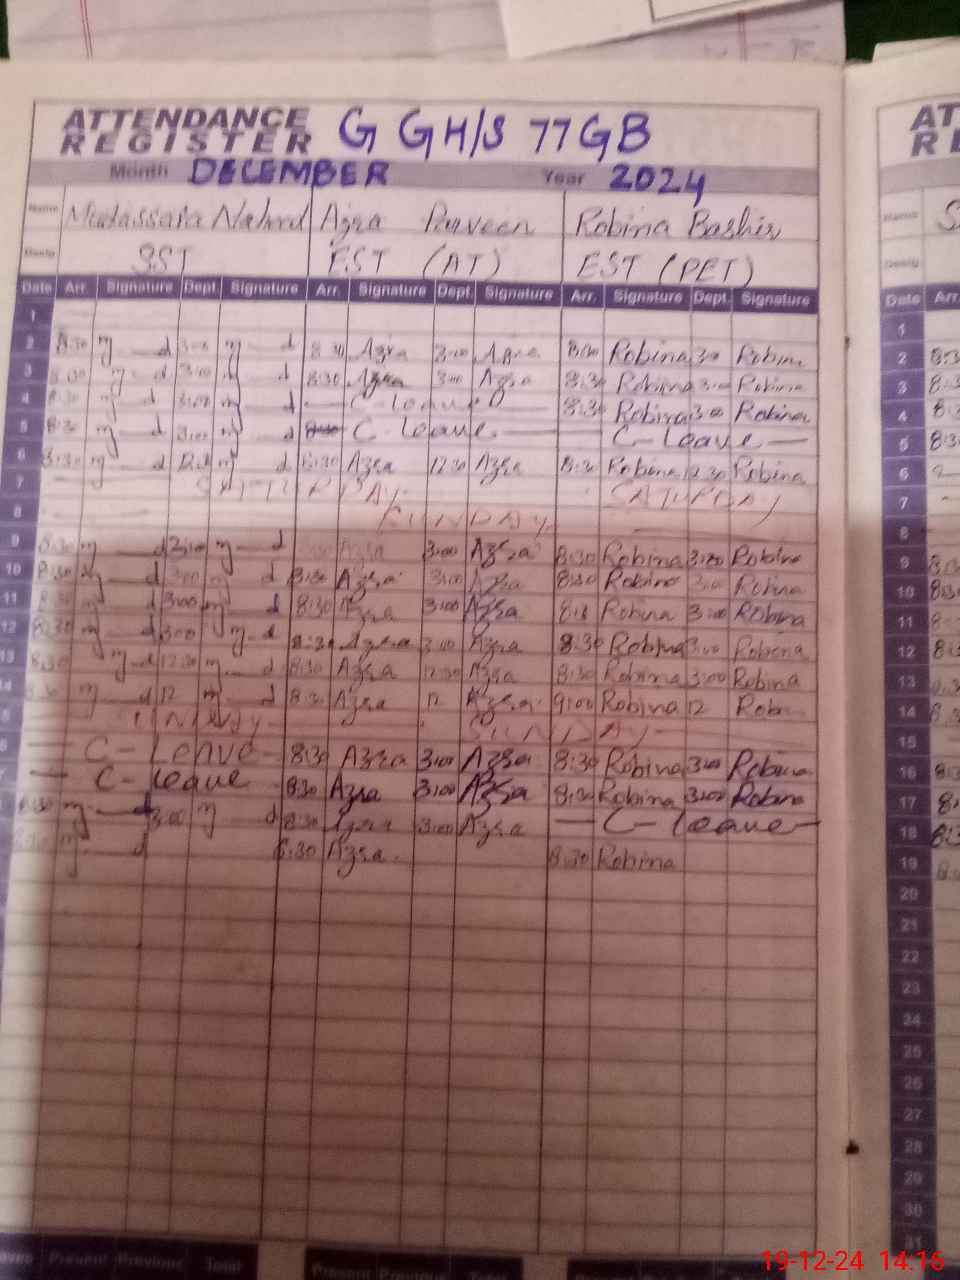 ATTENDANCE REGISTER G GH/S 77GB
Month DECEMBER Year 2024
Name Azra Parveen Robina Bashir
Desig SST EST (AT) EST (PET)
Date Arr. Signature Dept. Signature Arr. Signature Dept. Signature Arr. Signature Dept. Signature
1
2 8:30 m d 3:00 m d 8:30 Azra 3:00 Azra Robina 3:00 Robina
3 8:30 m d 3:00 m d 8:30 Azra 3:00 Azra 8:30 Robina 3:00 Robina
4 8:30 m d 3:00 m d C-leave 8:30 Robina 3:00 Robina
5 8:30 m d 3:00 m d C-leave C-leave
6 8:30 m d m d 8:30 Azra 12:30 Azra 8:30 Robina 12:30 Robina
7 SATURDAY
8 SUNDAY
9 8:30 m d 3:00 m d Azra 3:00 Azra 8:30 Robina 3:00 Robina
10 8:30 m d 3:00 m d 8:30 Azra 3:00 Azra 8:30 Robina 3:00 Robina
11 8:30 m d 3:00 m d 8:30 Azra 3:00 Azra Robina 3:00 Robina
12 8:30 m d 3:00 m d 8:30 Azra 3:00 Azra 8:30 Robina 3:00 Robina
13 8:30 m d 12:30 m d 8:30 Azra 12:30 Azra 8:30 Robina 3:00 Robina
14 8:30 m d 12 m d 8:30 Azra 12 Azra 9:00 Robina 12
SUNDAY
C-Leave 8:30 Azra 3:00 Azra 8:30 Robina 3:00 Robina
C-leave 8:30 Azra 3:00 Azra 8:30 Robina 3:00 Robina
8:30 m d 3:00 m d 8:30 Azra 3:00 Azra C-leave
m d 8:30 Azra 8:30 Robina
Present Previous Total
AT
RE
Name S
Desig
Date Arr.
1
2 8:3
3 8:3
4 8:3
5 8:3
6
7
8
9
10 8:3
11
12
13
14
15
16
17
18
19
20
21
22
23
24
25
26
27
28
29
30
31
19-12-24 14:16